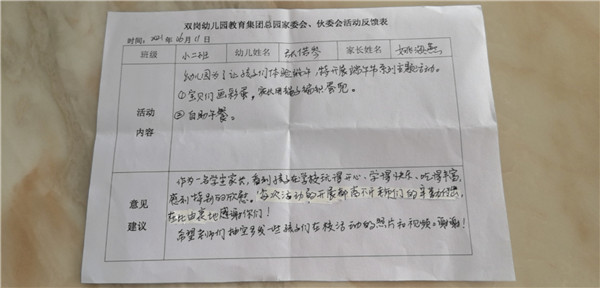 双岗幼儿园教育集团总园家委会、伙委会活动反馈表
时间：2021年06月11日
班级 小二班 幼儿姓名 家长姓名
活动
内容
幼儿园为了让孩子们体验端午，特开展端午节系列主题活动。
①宝贝们画彩蛋，家长用绳子编织蛋兜。
②自助午餐。
意见
建议
作为一名学生家长，看到孩子在学校玩得开心、学得快乐、吃得丰富，
感到特别的欣慰。每次活动的开展都离不开老师们的辛勤付出，
在此由衷地感谢你们！
希望老师们抽空多发一些孩子们在校活动的照片和视频。谢谢！